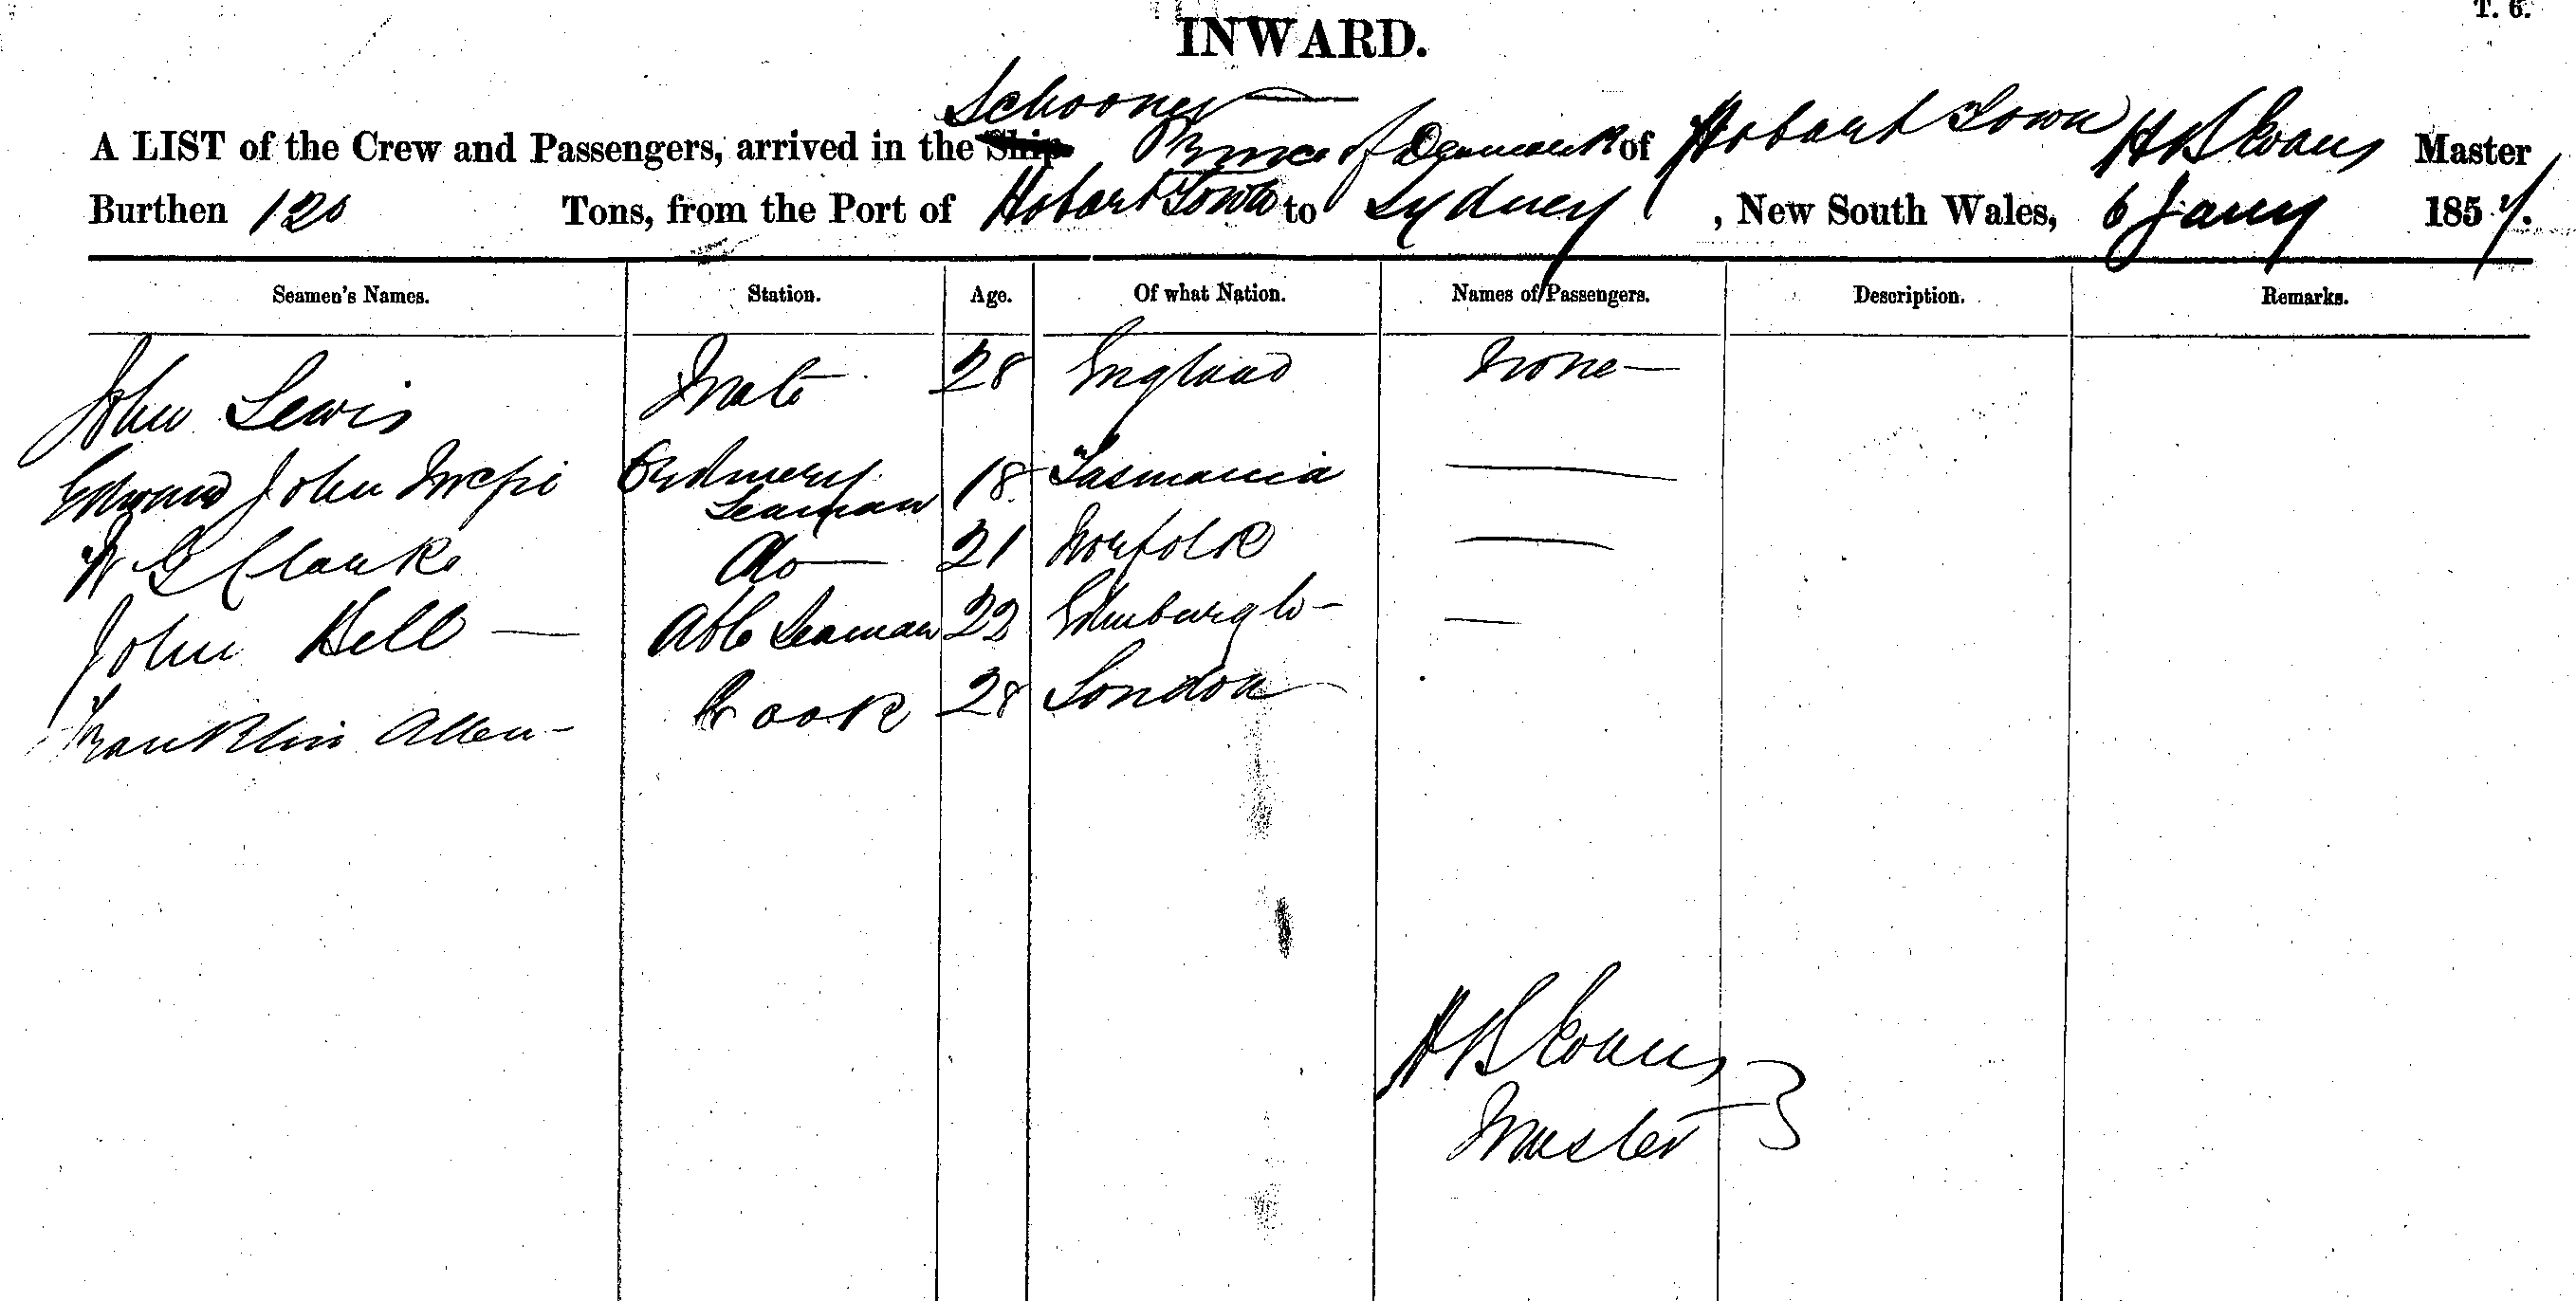 T. 6.
INWARD.
Schooner
A LIST of the Crew and Passengers, arrived in the Ship Prince of Denmark of Hobart Town H B Evans Master
Burthen 120 Tons, from the Port of Hobart Town to Sydney, New South Wales, 6 Jany 1857.
Seamen's Names. Station. Age. Of what Nation. Names of Passengers. Description. Remarks.
John Lewis Mate 28 England None
Edward John Ordinary 18 Tasmania
Seaman
W G Clarke do 21 Norfolk
John Hell Able Seaman 22 Edinburgh
Franklin Allen Cook 28 London
H B Evans
Master